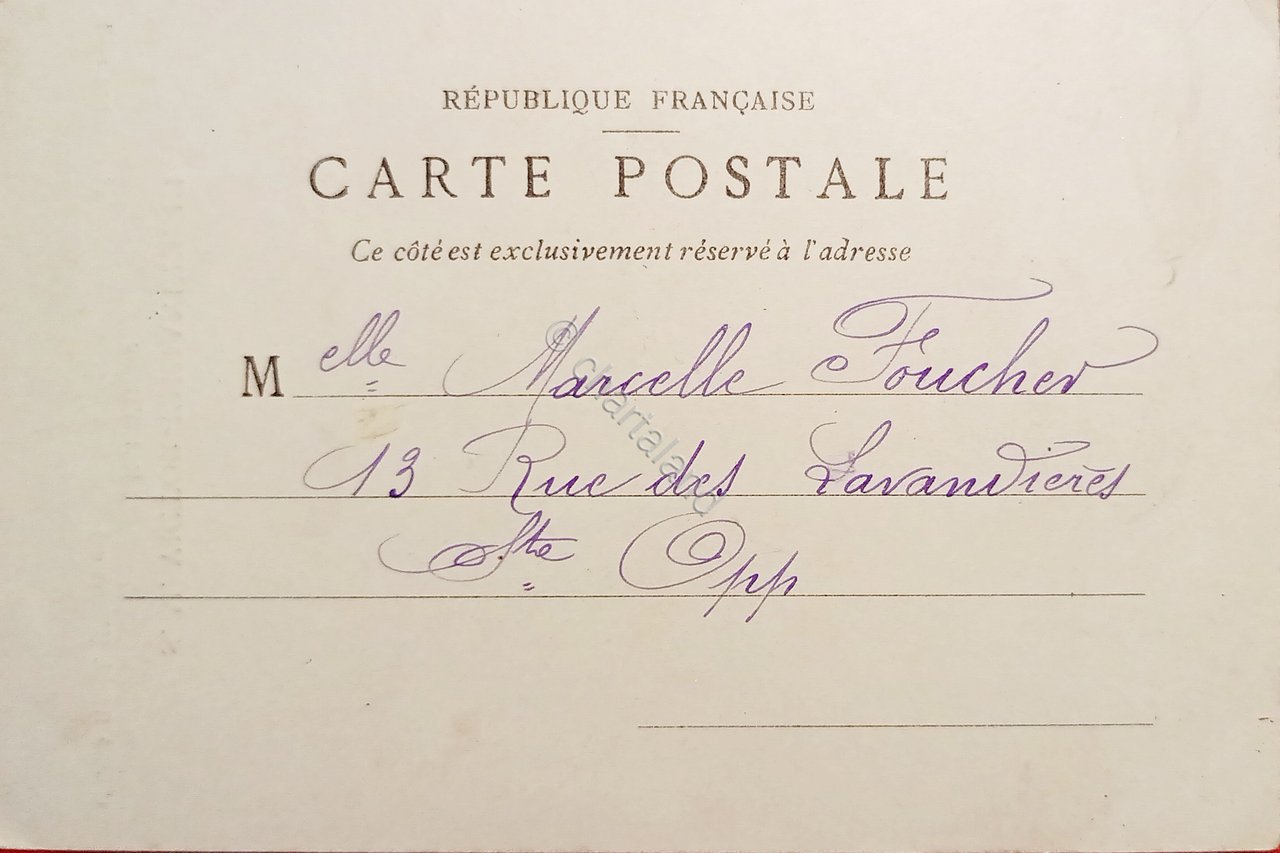 RÉPUBLIQUE FRANÇAISE
CARTE POSTALE
Ce côté est exclusivement réservé à l'adresse
Melle Marcelle Foucher
13 Rue des Lavandières
Ste Opp
© chartaland